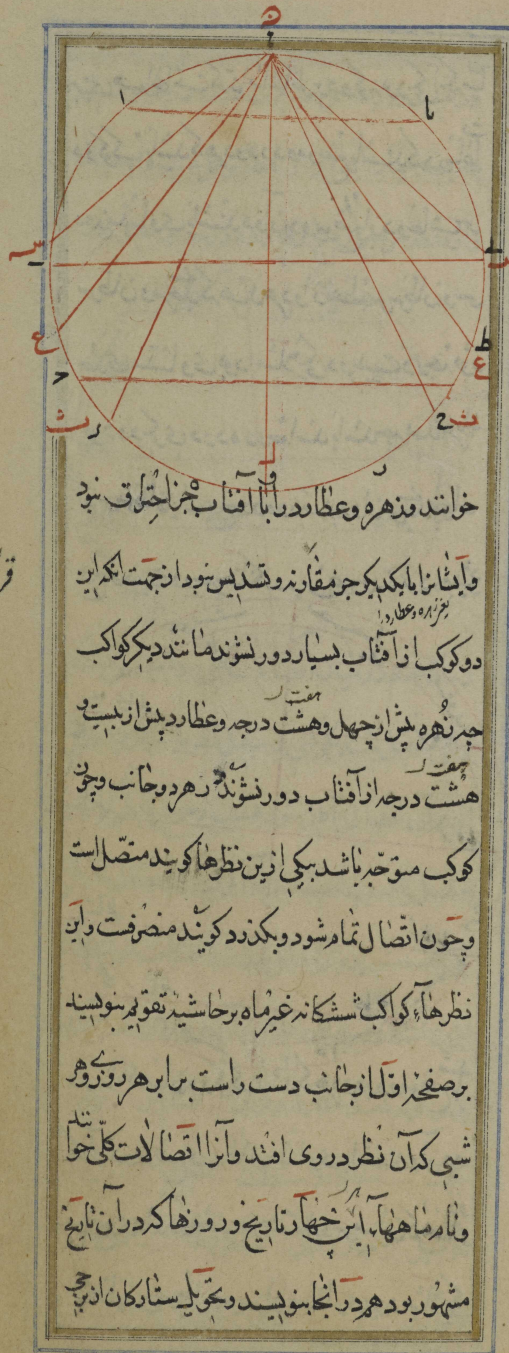 ن
ا
یا
س
ع
ع
ط
ح
ث
ر
ث
خوانند و زهره و عطارد را با آفتاب جز احتراق نبود
و ایشانرا با یکدیگر جز مقارنه و تسدیس نبود از جهت آنکه این
یعنی زهره و عطارد را
دو کوکب از آفتاب بسیار دور نشوند مانند دیگر کواکب
هفت
چه زهره پیش از چهل و هشت درجه و عطارد پیش از بیست و
هفت
هشت درجه از آفتاب دور نشوند در هر دو جانب و چون
کوکب متوجه باشد بیکی ازین نظرها کویند متصل است
و چون اتصال تمام شود و بکذرد کویند منصرفست و این
نظرهاء کواکب ششکانه غیر ماه بر حاشیه تقویم بنویسند
بر صفحه اول از جانب دست راست برابر هر روزی و هر
شبی که آن نظر در وی افتد و آنرا اتصالات کلی خوانند
و نام ماهها این چهار تاریخ و روزها که در آن تاریخ
مشهور بود هم در آنجا بنویسند و تحویل ستارکان از برجی